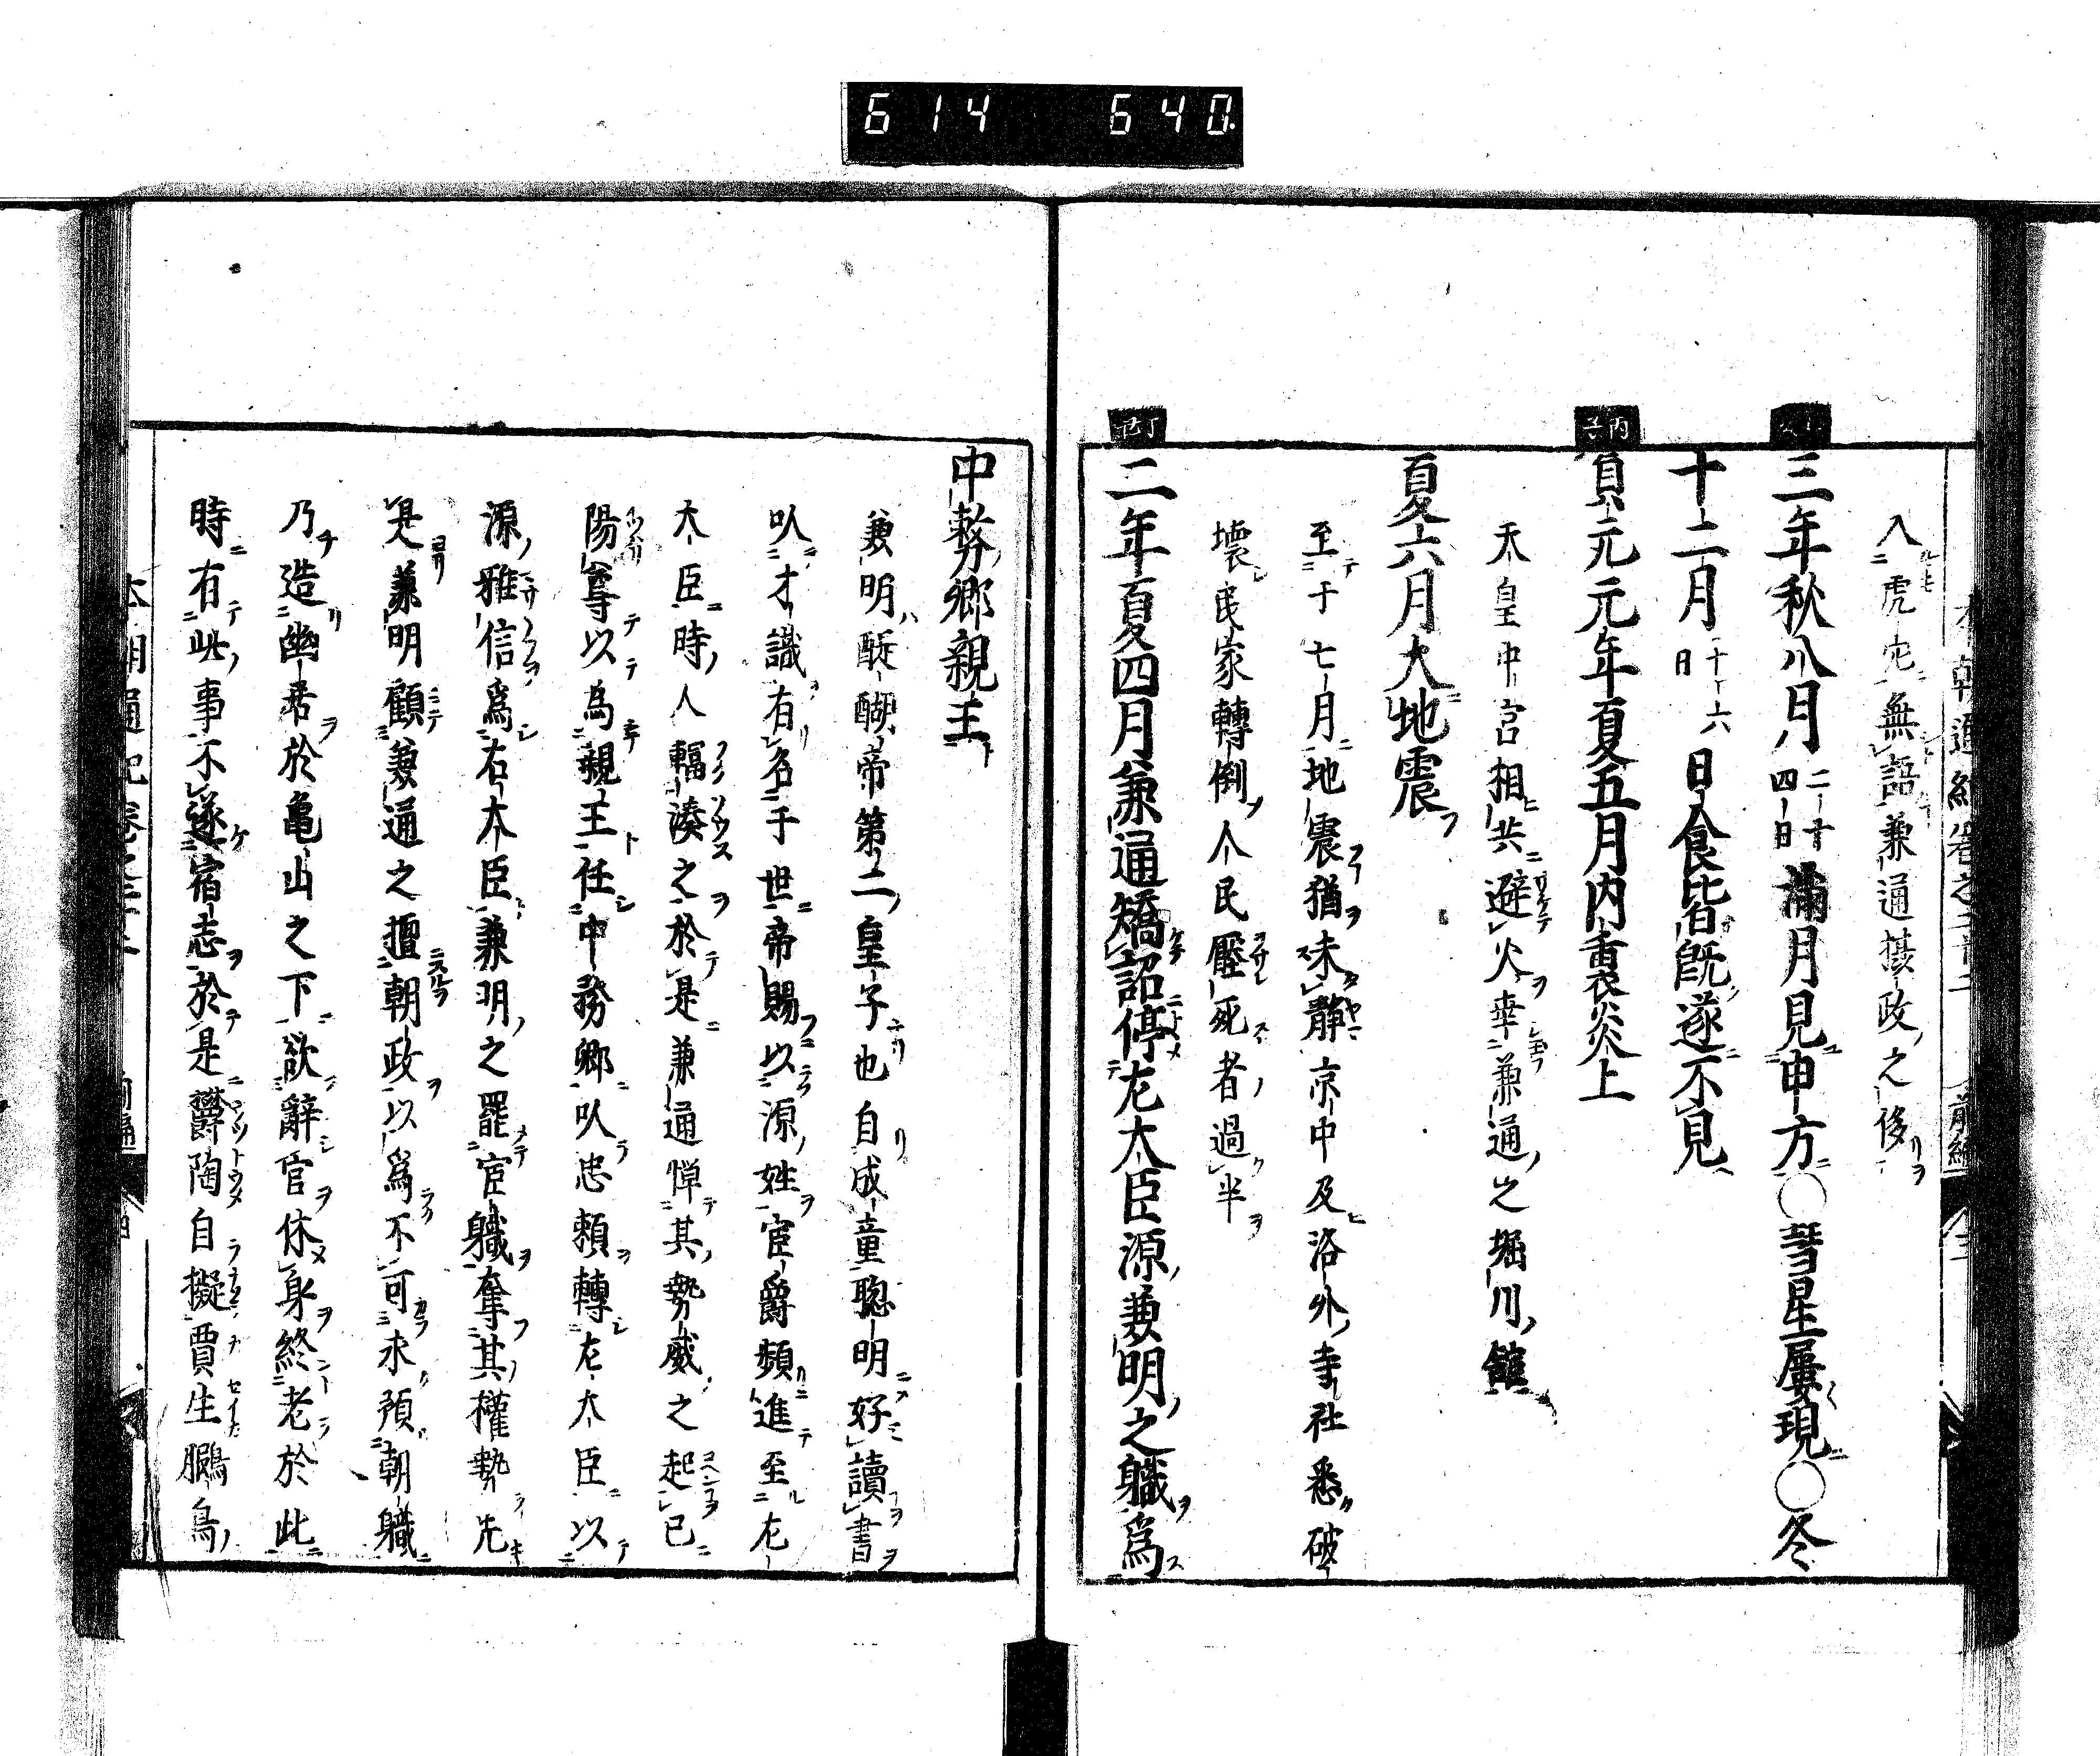 614 640
入虎穴無語兼通摂政之侈
三年秋八月二十四日滿月見申方○彗星屢現○冬
十二月十六日日食皆既遂不見
丙子
貞元元年夏五月内裏炎上
天皇中宮相共避火幸兼通之堀川館
夏六月大地震
至于七月地震猶未靜京中及洛外寺社悉破
壞民家轉倒人民壓死者過半
丁丑
二年夏四月兼通矯詔停左大臣源兼明之職爲
中務卿親王
兼明醍醐帝第二皇子也自成童聰明好讀書
以才識有名于世帝賜以源姓宦爵頻進至左
大臣時人輻湊之於是兼通憚其勢威之起已
陽奪以為親王任中務卿以忠頼轉左大臣以
源雅信爲右大臣兼明之罷宦職奪其權勢先
是兼明顧兼通之擅朝政以爲不可永預朝職
乃造幽居於亀山之下欲辭官休身終老於此
時有此事不遂宿志於是欝陶自擬賈生鵩鳥